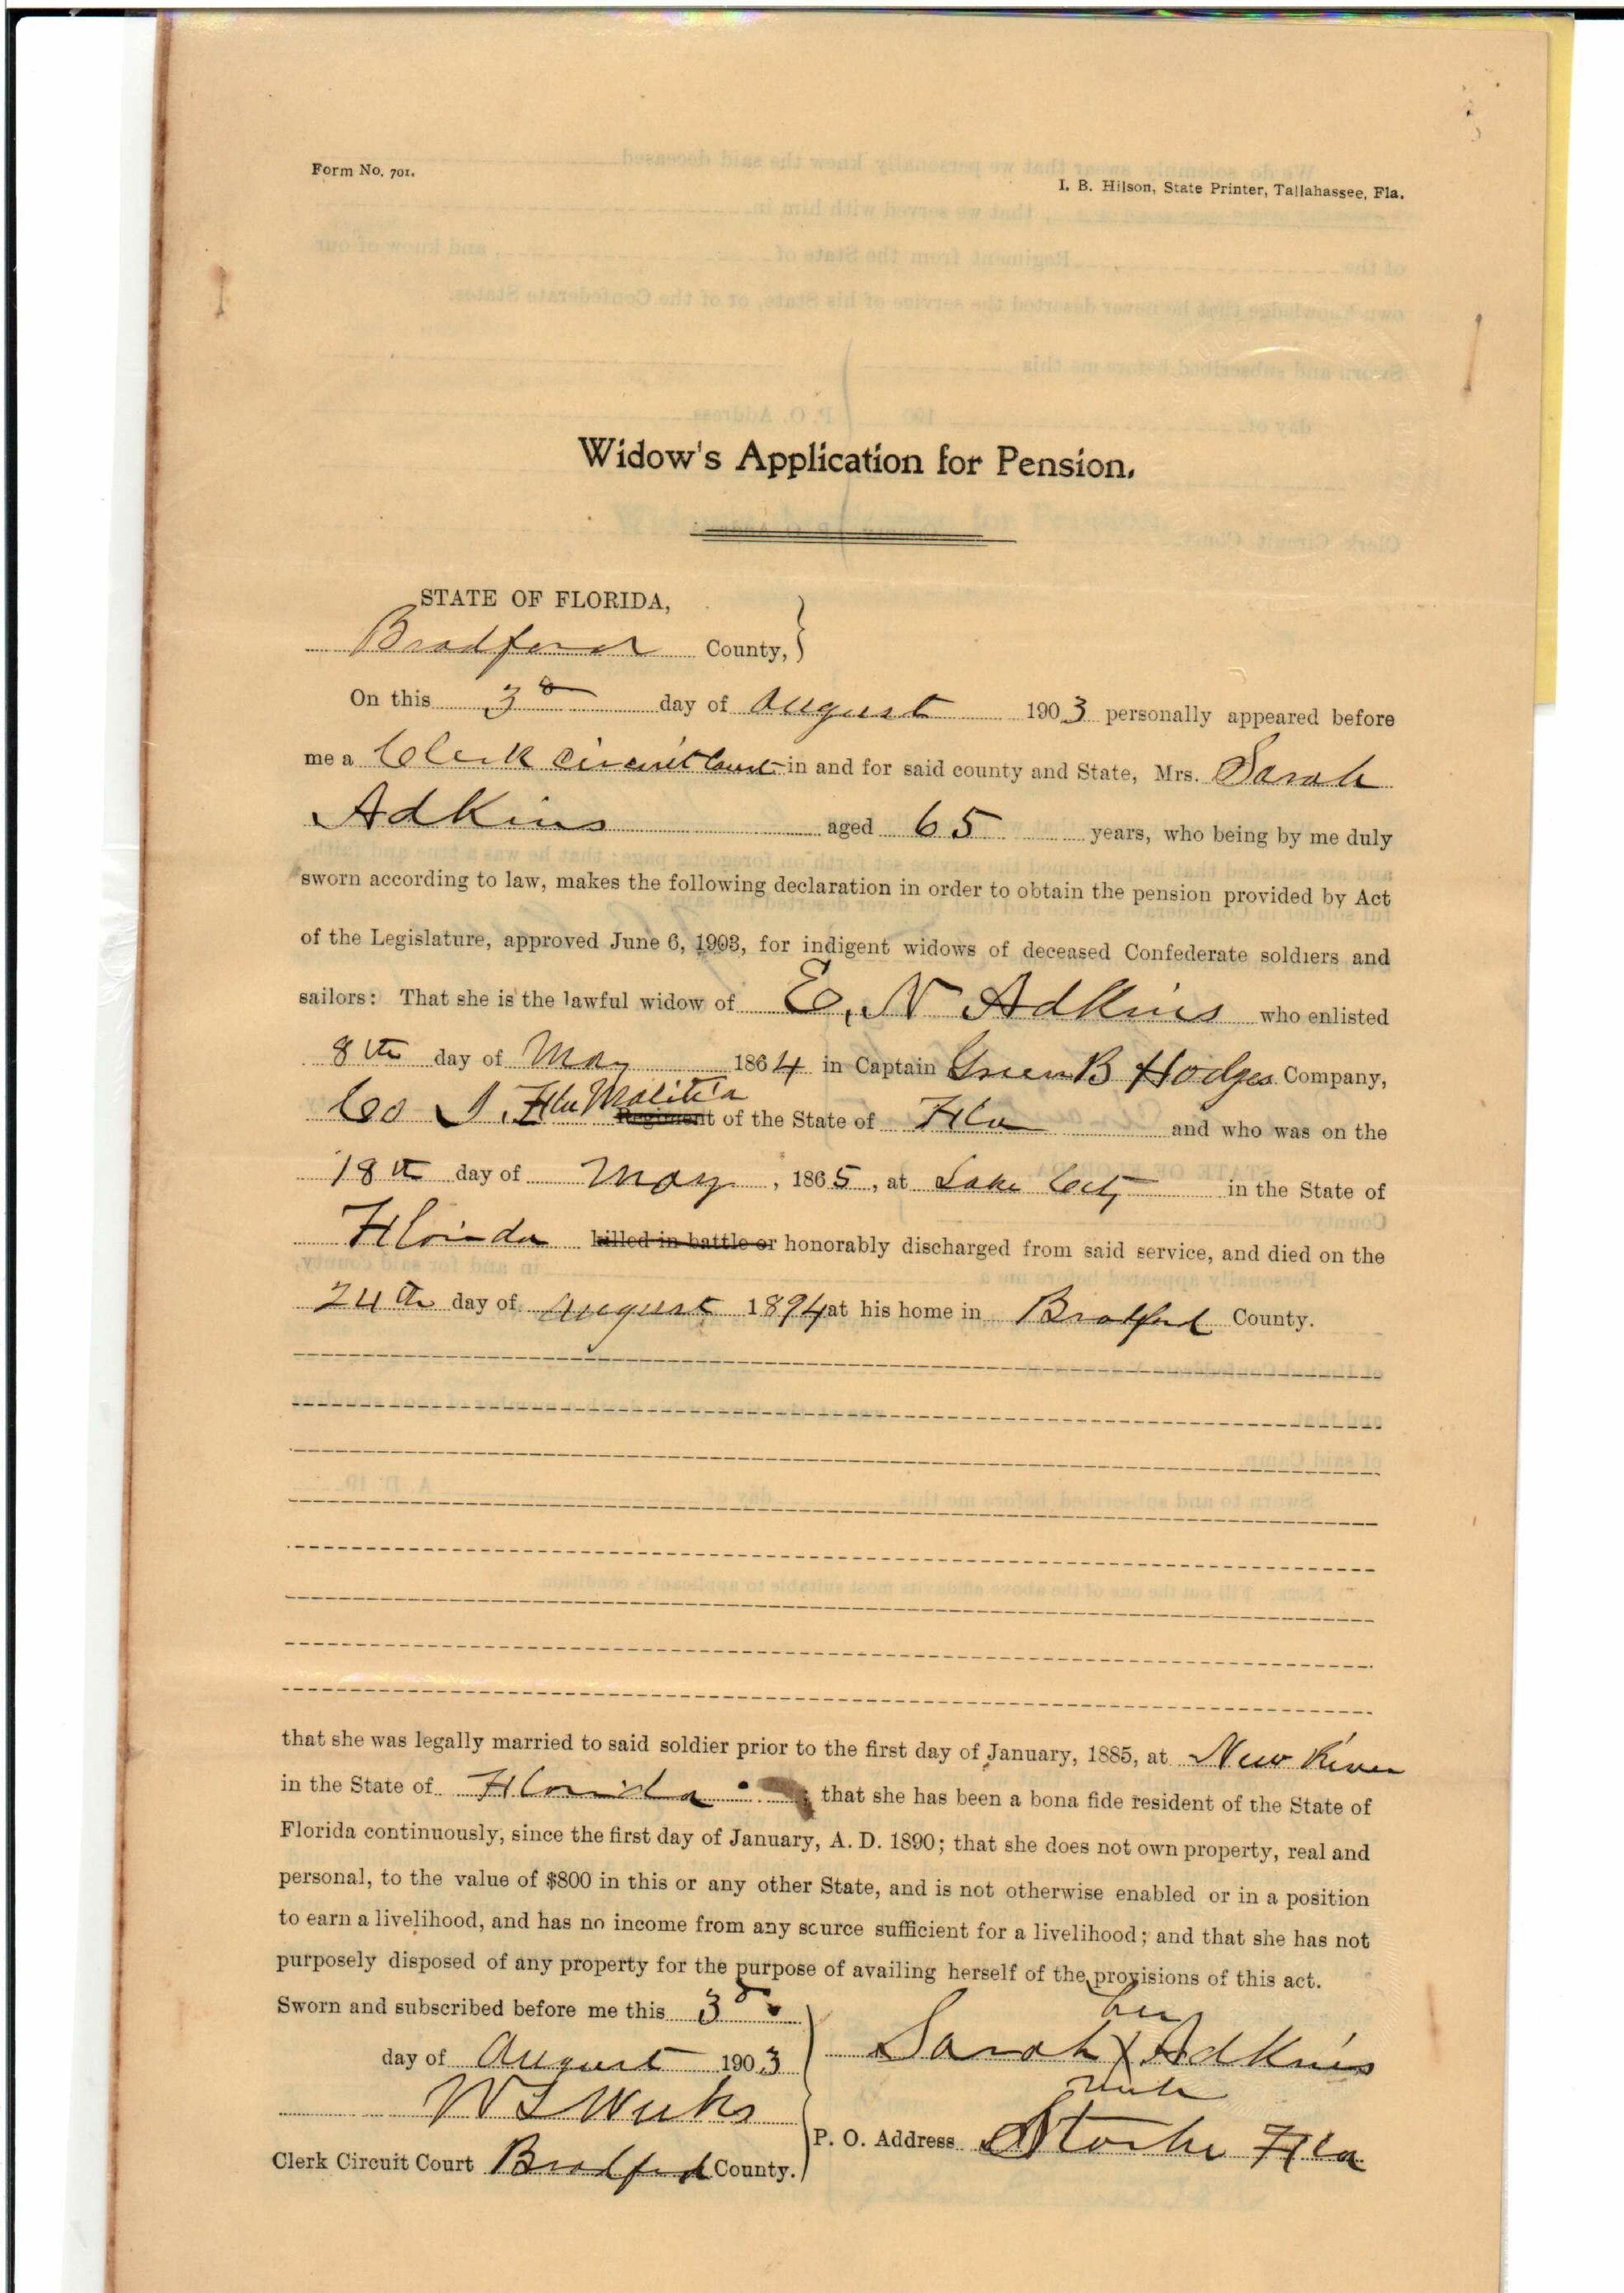 Form No. 701.
I. B. Hilson, State Printer, Tallahassee, Fla.
Widow's Application for Pension.
STATE OF FLORIDA,
Bradford County,
On this 3d day of August 1903 personally appeared before
me a Clerk Circuit Court in and for said county and State, Mrs. Sarah
Adkins aged 65 years, who being by me duly
sworn according to law, makes the following declaration in order to obtain the pension provided by Act
of the Legislature, approved June 6, 1903, for indigent widows of deceased Confederate soldiers and
sailors: That she is the lawful widow of E. N Adkins who enlisted
8th day of May 1864 in Captain Green B Hodges Company,
Co Fla Malitia Regiment of the State of Fla and who was on the
18th day of May, 1865, at Lake City in the State of
Florida killed in battle or honorably discharged from said service, and died on the
24th day of August 1894 at his home in Bradford County.
that she was legally married to said soldier prior to the first day of January, 1885, at New River
in the State of Florida that she has been a bona fide resident of the State of
Florida continuously, since the first day of January, A. D. 1890; that she does not own property, real and
personal, to the value of $800 in this or any other State, and is not otherwise enabled or in a position
to earn a livelihood, and has no income from any source sufficient for a livelihood; and that she has not
purposely disposed of any property for the purpose of availing herself of the provisions of this act.
Sworn and subscribed before me this 3d
her
day of August 1903
Sarah X Adkins
mark
W L Weeks
P. O. Address Starke Fla
Clerk Circuit Court Bradford County.